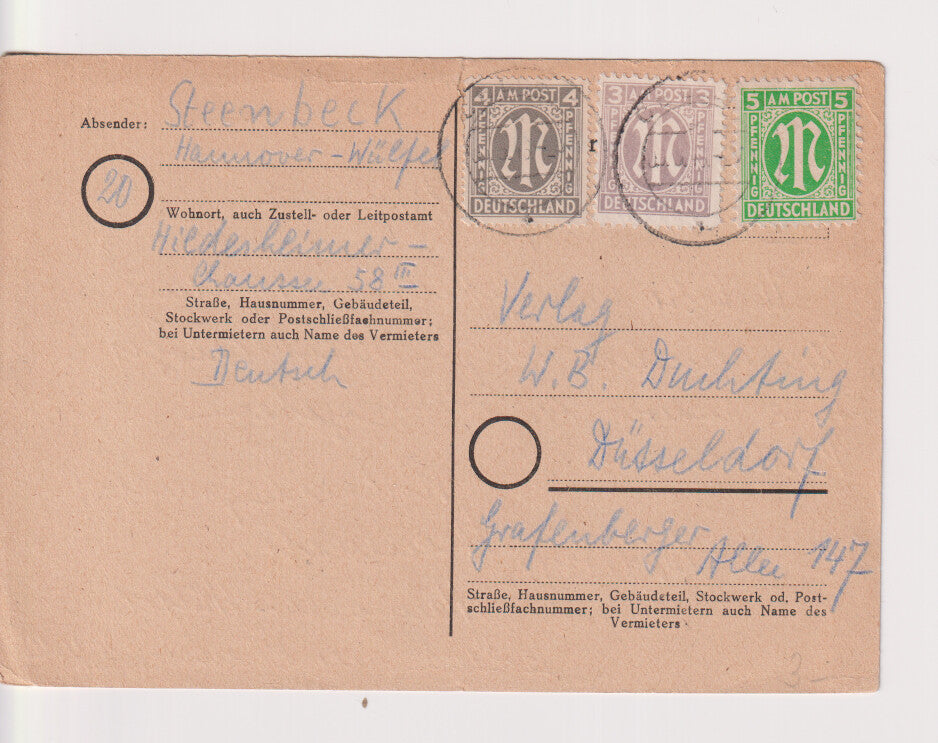 Absender: Steenbeck
Hannover-Wülfel
20
Wohnort, auch Zustell- oder Leitpostamt
Hildesheimer-
Chaussee 58 III
Straße, Hausnummer, Gebäudeteil,
Stockwerk oder Postschließfachnummer;
bei Untermietern auch Name des Vermieters
Deutsch
4 AM POST 4
PFENNIG PFENNIG
M
DEUTSCHLAND
3 AM POST 3
PFENNIG PFENNIG
M
DEUTSCHLAND
5 AM POST 5
PFENNIG PFENNIG
M
DEUTSCHLAND
r
Verlag
W.B. Duchting
Düsseldorf
Grafenberger
Allee 147
Straße, Hausnummer, Gebäudeteil, Stockwerk od. Post-
schließfachnummer; bei Untermietern auch Name des
Vermieters
3-